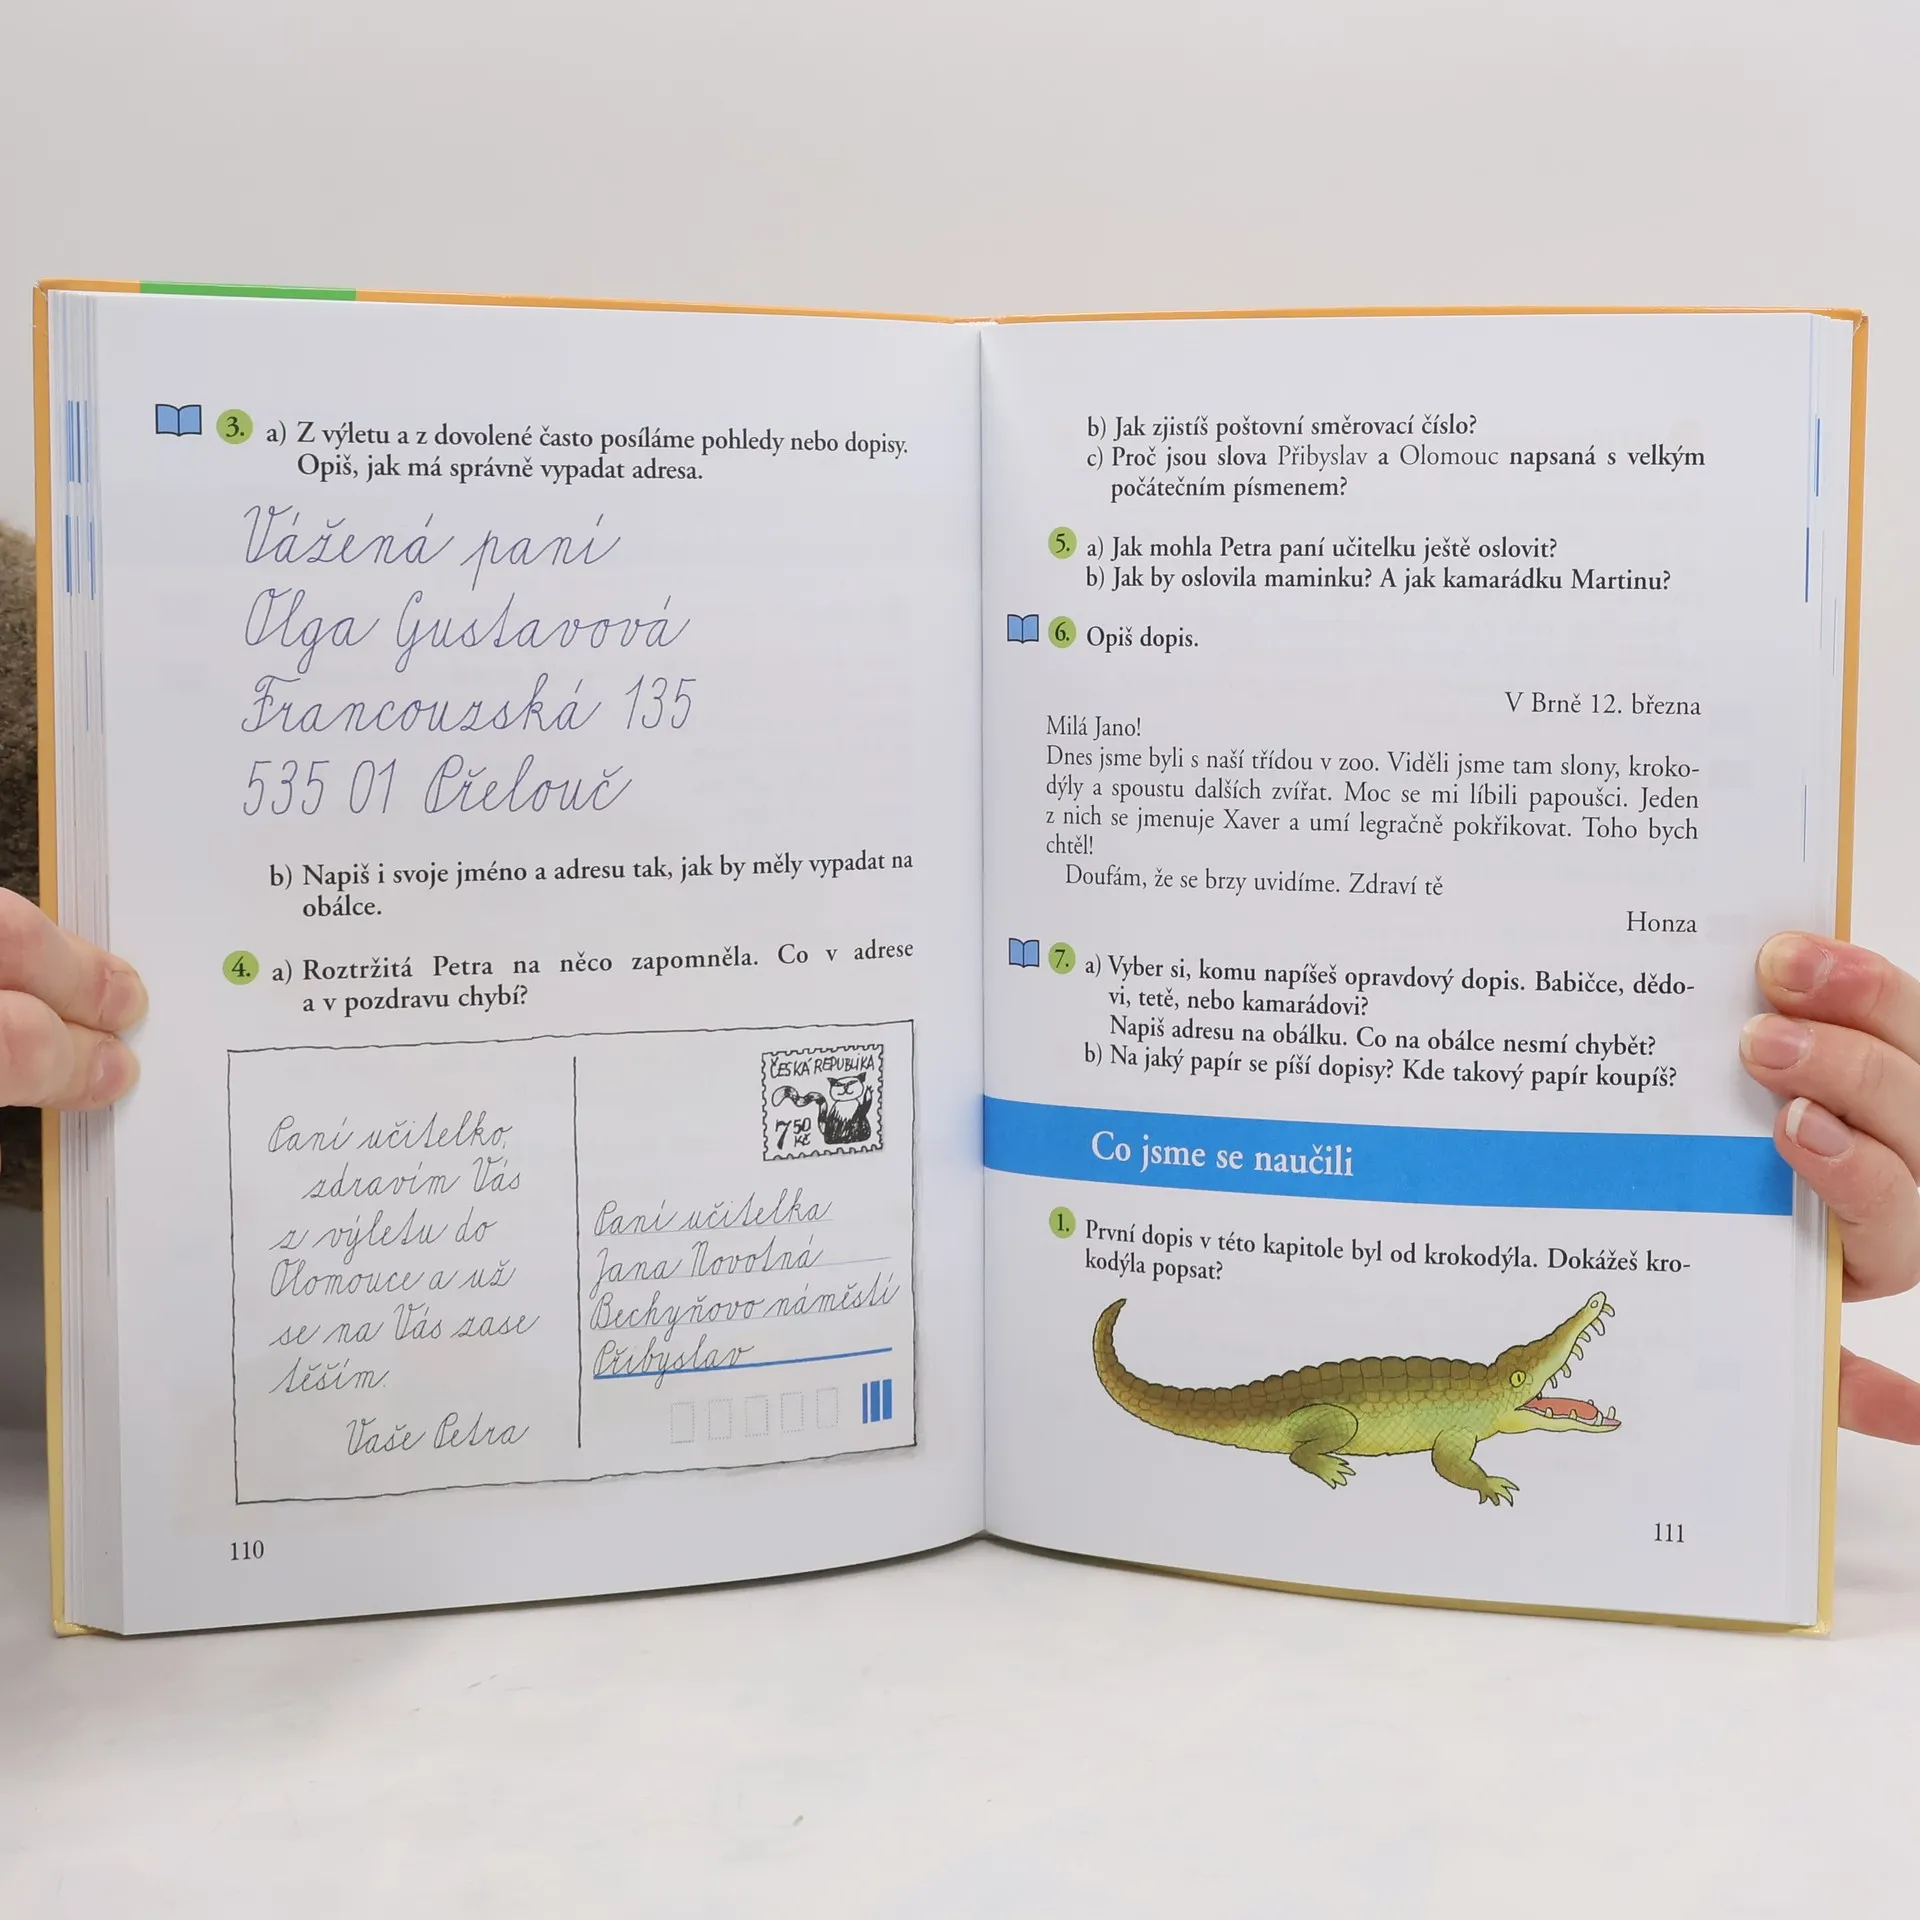 3. a) Z výletu a z dovolené často posíláme pohledy nebo dopisy.
Opiš, jak má správně vypadat adresa.
Vážená paní
Olga Gustavová
Francouzská 135
535 01 Přelouč
b) Napiš i svoje jméno a adresu tak, jak by měly vypadat na
obálce.
4. a) Roztržitá Petra na něco zapomněla. Co v adrese
a v pozdravu chybí?
Paní učitelko,
zdravím Vás
z výletu do
Olomouce a už
se na Vás zase
těším.
Vaše Petra
ČESKÁ REPUBLIKA
7 50
Kč
Paní učitelka
Jana Novotná
Bechyňovo náměstí
Přibyslav
110
b) Jak zjistíš poštovní směrovací číslo?
c) Proč jsou slova Přibyslav a Olomouc napsaná s velkým
počátečním písmenem?
5. a) Jak mohla Petra paní učitelku ještě oslovit?
b) Jak by oslovila maminku? A jak kamarádku Martinu?
6. Opiš dopis.
V Brně 12. března
Milá Jano!
Dnes jsme byli s naší třídou v zoo. Viděli jsme tam slony, kroko-
dýly a spoustu dalších zvířat. Moc se mi líbili papoušci. Jeden
z nich se jmenuje Xaver a umí legračně pokřikovat. Toho bych
chtěl!
Doufám, že se brzy uvidíme. Zdraví tě
Honza
7. a) Vyber si, komu napíšeš opravdový dopis. Babičce, dědo-
vi, tetě, nebo kamarádovi?
Napiš adresu na obálku. Co na obálce nesmí chybět?
b) Na jaký papír se píší dopisy? Kde takový papír koupíš?
Co jsme se naučili
1. První dopis v této kapitole byl od krokodýla. Dokážeš kro-
kodýla popsat?
111